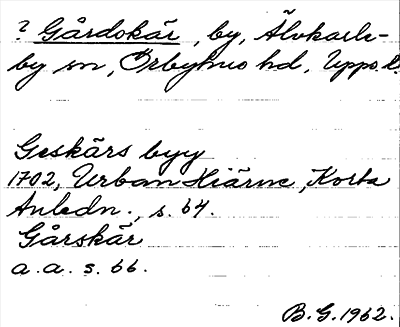 ? Gårdskär, by, Älvkarle-
by sn, Örbyhus hd, Upps. l.
Geskärs byy
1702, Urban Hiärne, Korta
Anledn., s. 64.
Gårskär
a. a. s. 66.
B. G. 1962.